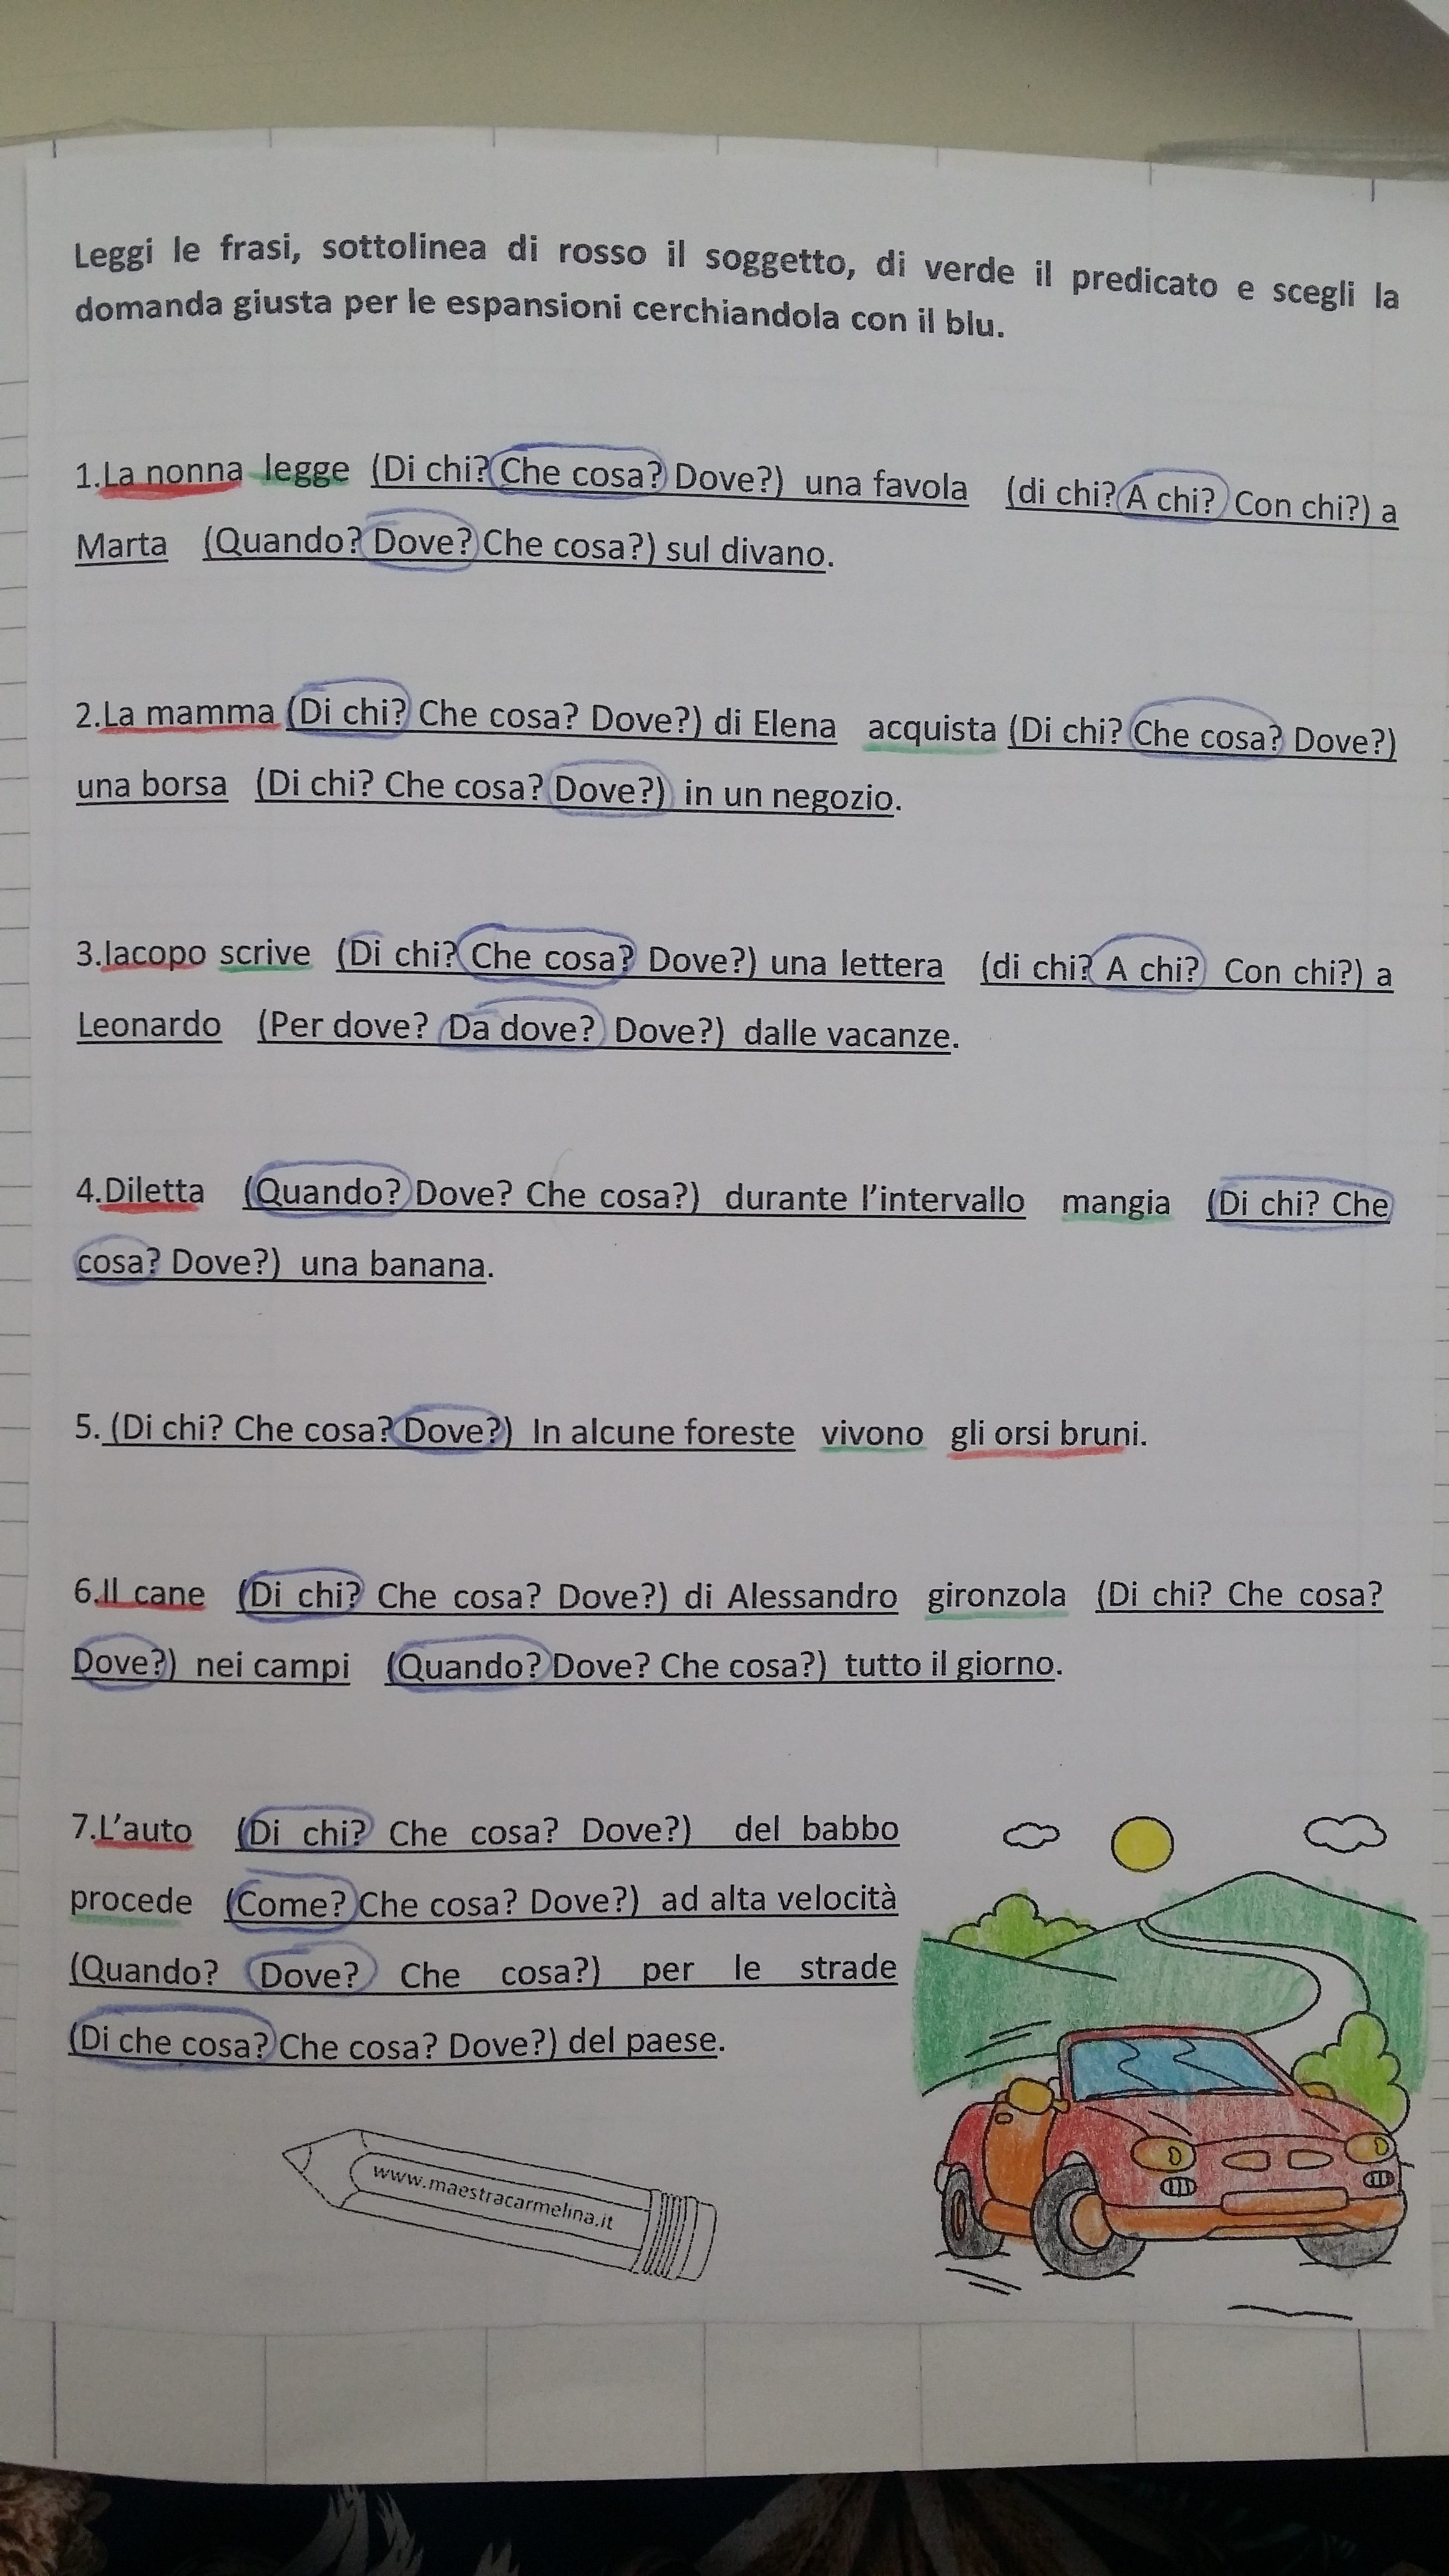 Leggi le frasi, sottolinea di rosso il soggetto, di verde il predicato e scegli la
domanda giusta per le espansioni cerchiandola con il blu.
1.La nonna legge (Di chi? Che cosa? Dove?) una favola (di chi? A chi? Con chi?) a
Marta (Quando? Dove? Che cosa?) sul divano.
2.La mamma (Di chi? Che cosa? Dove?) di Elena acquista (Di chi? Che cosa? Dove?)
una borsa (Di chi? Che cosa? Dove?) in un negozio.
3.Iacopo scrive (Di chi? Che cosa? Dove?) una lettera (di chi? A chi? Con chi?) a
Leonardo (Per dove? Da dove? Dove?) dalle vacanze.
4.Diletta (Quando? Dove? Che cosa?) durante l'intervallo mangia (Di chi? Che
cosa? Dove?) una banana.
5. (Di chi? Che cosa? Dove?) In alcune foreste vivono gli orsi bruni.
6.Il cane (Di chi? Che cosa? Dove?) di Alessandro gironzola (Di chi? Che cosa?
Dove?) nei campi (Quando? Dove? Che cosa?) tutto il giorno.
7.L'auto (Di chi? Che cosa? Dove?) del babbo
procede (Come? Che cosa? Dove?) ad alta velocità
(Quando? Dove? Che cosa?) per le strade
(Di che cosa? Che cosa? Dove?) del paese.
www.maestracarmelina.it